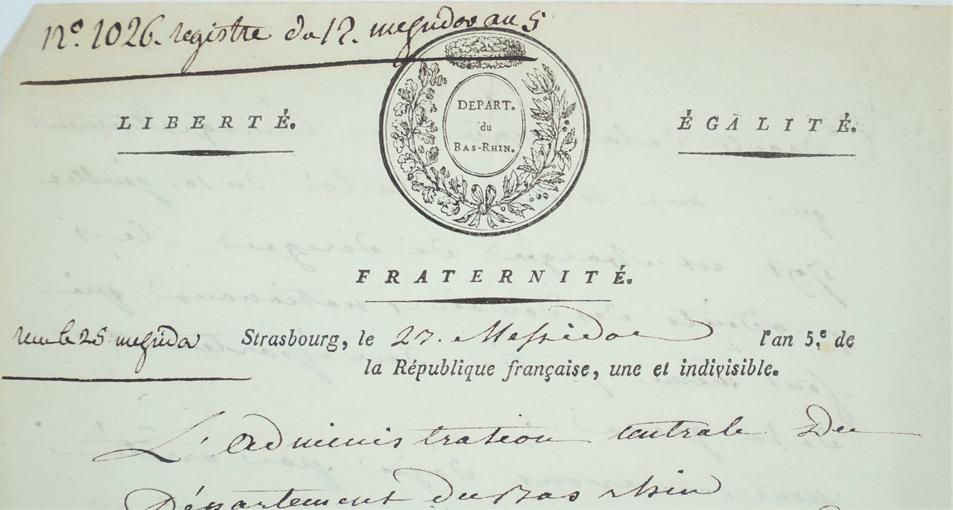 nº. 1026. registre du 12. messidor au 5
LIBERTÉ.
DÉPART.
du
BAS-RHIN.
ÉGALITÉ.
FRATERNITÉ.
Strasbourg, le 27. Messidor l'an 5.e de
la République française, une et indivisible.
L'administration centrale du
Département du Bas rhin